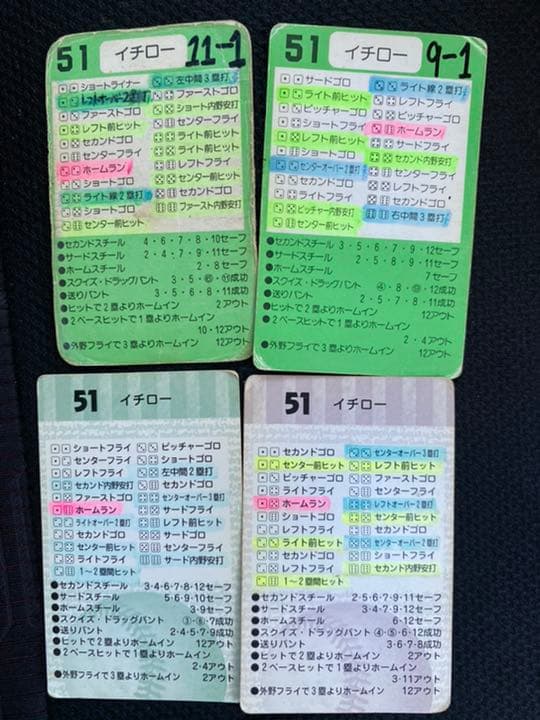 51 イチロー 11-1
ショートライナー 左中間3塁打
レフトオーバー2塁打 ファーストゴロ
ファーストゴロ ショート内野安打
レフト前ヒット センターフライ
セカンドゴロ ライト前ヒット
センターフライ ライト前ヒット
ホームラン レフトフライ
ショートゴロ センター前ヒット
ライト線2塁打 セカンドゴロ
ショートゴロ ファースト内野安打
センター前ヒット
●セカンドスチール 4・6・7・8・10セーフ
●サードスチール 2・4・7・9・11セーフ
●ホームスチール 2・8セーフ
●スクイズ・ドラッグバント 3・5・⑥・⑪成功
●送りバント 3・5・6・8・11成功
●ヒットで2塁よりホームイン 2アウト
●2ベースヒットで1塁よりホームイン
10・12アウト
●外野フライで3塁よりホームイン 12アウト
51 イチロー 9-1
サードゴロ ライト線2塁打
ライト前ヒット レフトフライ
ピッチャーゴロ センターフライ
ショートフライ ホームラン
レフト前ヒット サードフライ
ショートゴロ セカンド内野安打
センターオーバー2塁打 センターフライ
セカンドゴロ レフトフライ
ライトフライ セカンドゴロ
ピッチャー内野安打 右中間3塁打
センター前ヒット
●セカンドスチール 3・5・6・7・9・12セーフ
●サードスチール 2・5・6・8・11セーフ
●ホームスチール 7セーフ
●スクイズ・ドラッグバント ④・8・⑩・12成功
●送りバント 2・5・7・8・11成功
●ヒットで2塁よりホームイン 12アウト
●2ベースヒットで1塁よりホームイン
2・4アウト
●外野フライで3塁よりホームイン 12アウト
51 イチロー
ショートフライ ピッチャーゴロ
センターフライ ショートゴロ
レフトフライ 左中間2塁打
セカンド内野安打 センターフライ
ファーストゴロ センターオーバー2塁打
ホームラン サードフライ
ライトオーバー2塁打 レフト前ヒット
セカンドゴロ サードゴロ
センター前ヒット センターフライ
ライトフライ サード内野安打
1〜2塁間ヒット
●セカンドスチール 3・4・6・7・8・12セーフ
●サードスチール 5・6・9・10セーフ
●ホームスチール 3・9セーフ
●スクイズ・ドラッグバント ③・⑥・7成功
●送りバント 2・4・5・7・9成功
●ヒットで2塁よりホームイン 12アウト
●2ベースヒットで1塁よりホームイン
2・4アウト
●外野フライで3塁よりホームイン 2アウト
51 イチロー
セカンドゴロ センターオーバー3塁打
センター前ヒット レフト前ヒット
ピッチャーゴロ ファーストゴロ
ライトフライ センターフライ
ホームラン レフトオーバー2塁打
ショートゴロ センター前ヒット
レフトフライ セカンドゴロ
ライト前ヒット センターオーバー2塁打
セカンドゴロ ショートフライ
レフトフライ セカンド内野安打
1〜2塁間ヒット
●セカンドスチール 2・5・6・7・9・11セーフ
●サードスチール 3・4・7・9・12セーフ
●ホームスチール 6・12セーフ
●スクイズ・ドラッグバント ④・⑤・6・12成功
●送りバント 3・6・7・8成功
●ヒットで2塁よりホームイン 2アウト
●2ベースヒットで1塁よりホームイン
3・11アウト
●外野フライで3塁よりホームイン 12アウト